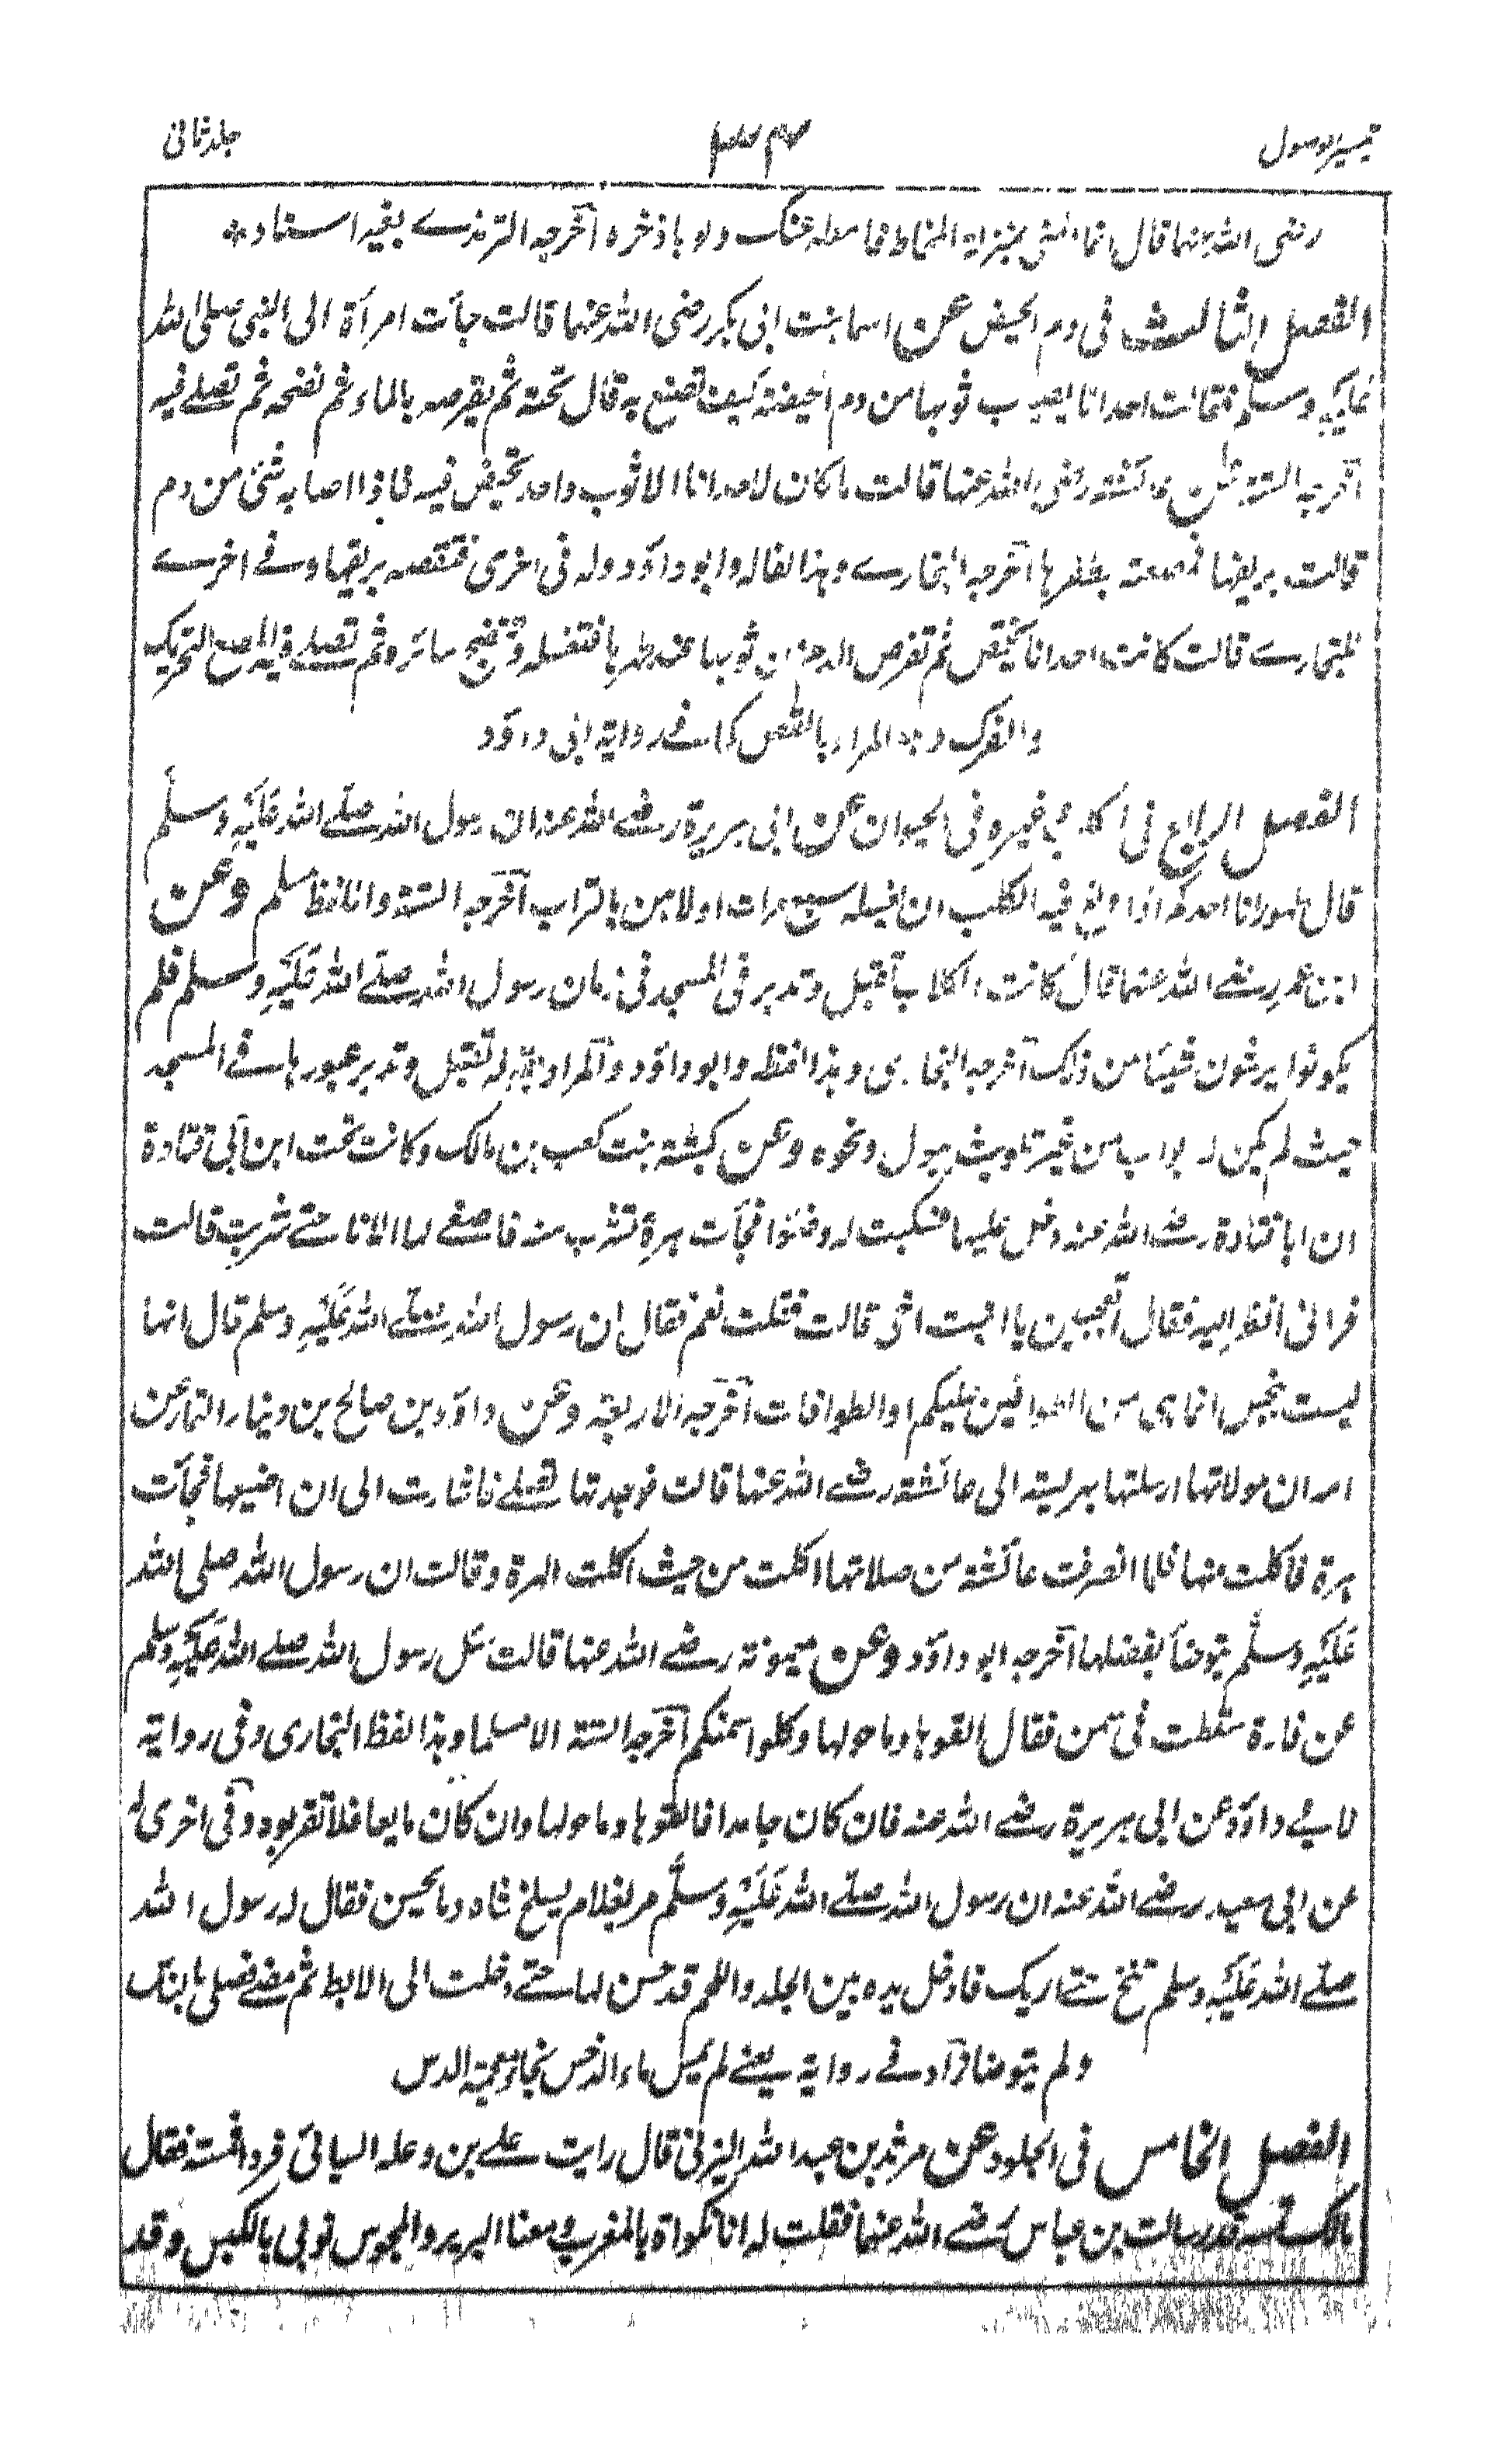 تیسیر الوصول
جلد ثانی
رضی الله عنهما قال انما المنی بمنزلة المخاط فامطه عنک ولو باذخره اخرجه الترمذے بغیر اسناد *
الفصل الثالث فی دم الحیض عن اسما بنت ابی بکر رضی الله عنها قالت جاَت امرأة الی النبی صلی الله
عَلَیْهِ وسلم فقالت احدانا یصیب ثوبها من دم الحیضة کیف تصنع به قال تحته ثم تقرصه بالماء ثم تنضحه ثم تصلے فیه
اخرجه الستة وعن عائشة رضی الله عنها قالت ما کان لاحدانا الا ثوب واحد تحیض فیه فاذا اصابه شئ من دم
قالت بریقها فمصعته بظفرها اخرجه البخارے وهذا لفظه وابو داؤد وله فی اخری فقصعته بریقها وفے اخرے
للبخارے قالت کانت احدانا تحیض ثم تقرص الدم من ثوبها عند طهرها فتغسله وتنضح سائره ثم تصلے فیه المصع التحریک
والفرک وهو المراد بالقصع کما فے روایة ابی داؤد
الفصل الرابع فی الکلب وغیره فی الحیوان عن ابی هریرة رضے الله عنه ان رسول الله صلے الله عَلَیْهِ وسلم
قال طهور انا احدکم اذا ولغ فیه الکلب ان یغسله سبع مرات اولاهن بالتراب اخرجه الستة وانا لفظ مسلم وعن
ابن عمر رضے الله عنهما قال کانت الکلاب تقبل وتدبر فی المسجد فی زمان رسول الله صلے الله عَلَیْهِ وسلم فلم
یکونوا یرشون شیئا من ذلک اخرجه البخاری وهذا لفظه وابو داؤد والمراد بقوله تقبل وتدبر عبورها فے المسجد
حیث لم یکن له ابواب من غیر تلویث ببول ونحوه وعن کبشة بنت کعب بن مالک وکانت تحت ابن ابی قتادة
ان ابا قتادة رضے الله عنه دخل علیها فسکبت له وضوَا فجاَت هرة تشرب منه فاصغے لها الانا حتے شربت قالت
فرانی انظر الیه فقال اتعجبین یا ابنت اخی قالت فقلت نعم فقال ان رسول الله صلے الله عَلَیْهِ وسلم قال انها
لیست بنجس انما هی من الطوافین علیکم او الطوافات اخرجه الاربعة وعن داؤد بن صالح بن دینار التمار عن
امه ان مولاتها ارسلتها بهریسة الی عائشة رضے الله عنها قالت فوجدتها تصلے فاشارت الی ان اضعیها فجاَت
هرة فاکلت منها فلما انصرفت عائشة من صلاتها اکلت من حیث اکلت الهرة وقالت ان رسول الله صلی الله
عَلَیْهِ وسلم یتوضأ بفضلها اخرجه ابو داؤد وعن میمونة رضے الله عنها قالت سئل رسول الله صلے الله عَلَیْهِ وسلم
عن فارة سقطت فی سمن فقال القوها وما حولها وکلوا سمنکم اخرجه الستة الا مسلما وهذا لفظ البخاری وفی روایة
لابے داؤد عن ابی هریرة رضے الله عنه فان کان جامدا فالقوها وما حولها وان کان مایعا فلا تقربوه وفی اخری له
عن ابی سعید رضے الله عنه ان رسول الله صلے الله عَلَیْهِ وسلم مر بغلام یسلخ شاه وما یحسن فقال له رسول الله
صلے الله عَلَیْهِ وسلم تنح حتے اریک فادخل یده بین الجلد واللحم فدحس لها حتے دخلت الی الابط ثم مضے فصلی بالناس
ولم یتوضا زاد فے روایة یعنے لم یمس ماء الدحس
الفصل الخامس فی الجلود عن مرثد بن عبد الله الیزنی قال رایت علے بن وعله السبائی فروا فمسته فقال
مالک تمسه قد سالت بن عباس رضے الله عنهما فقلت له انا نکون بالمغرب ومعنا البربر والمجوس نوتی بالکبش وقد